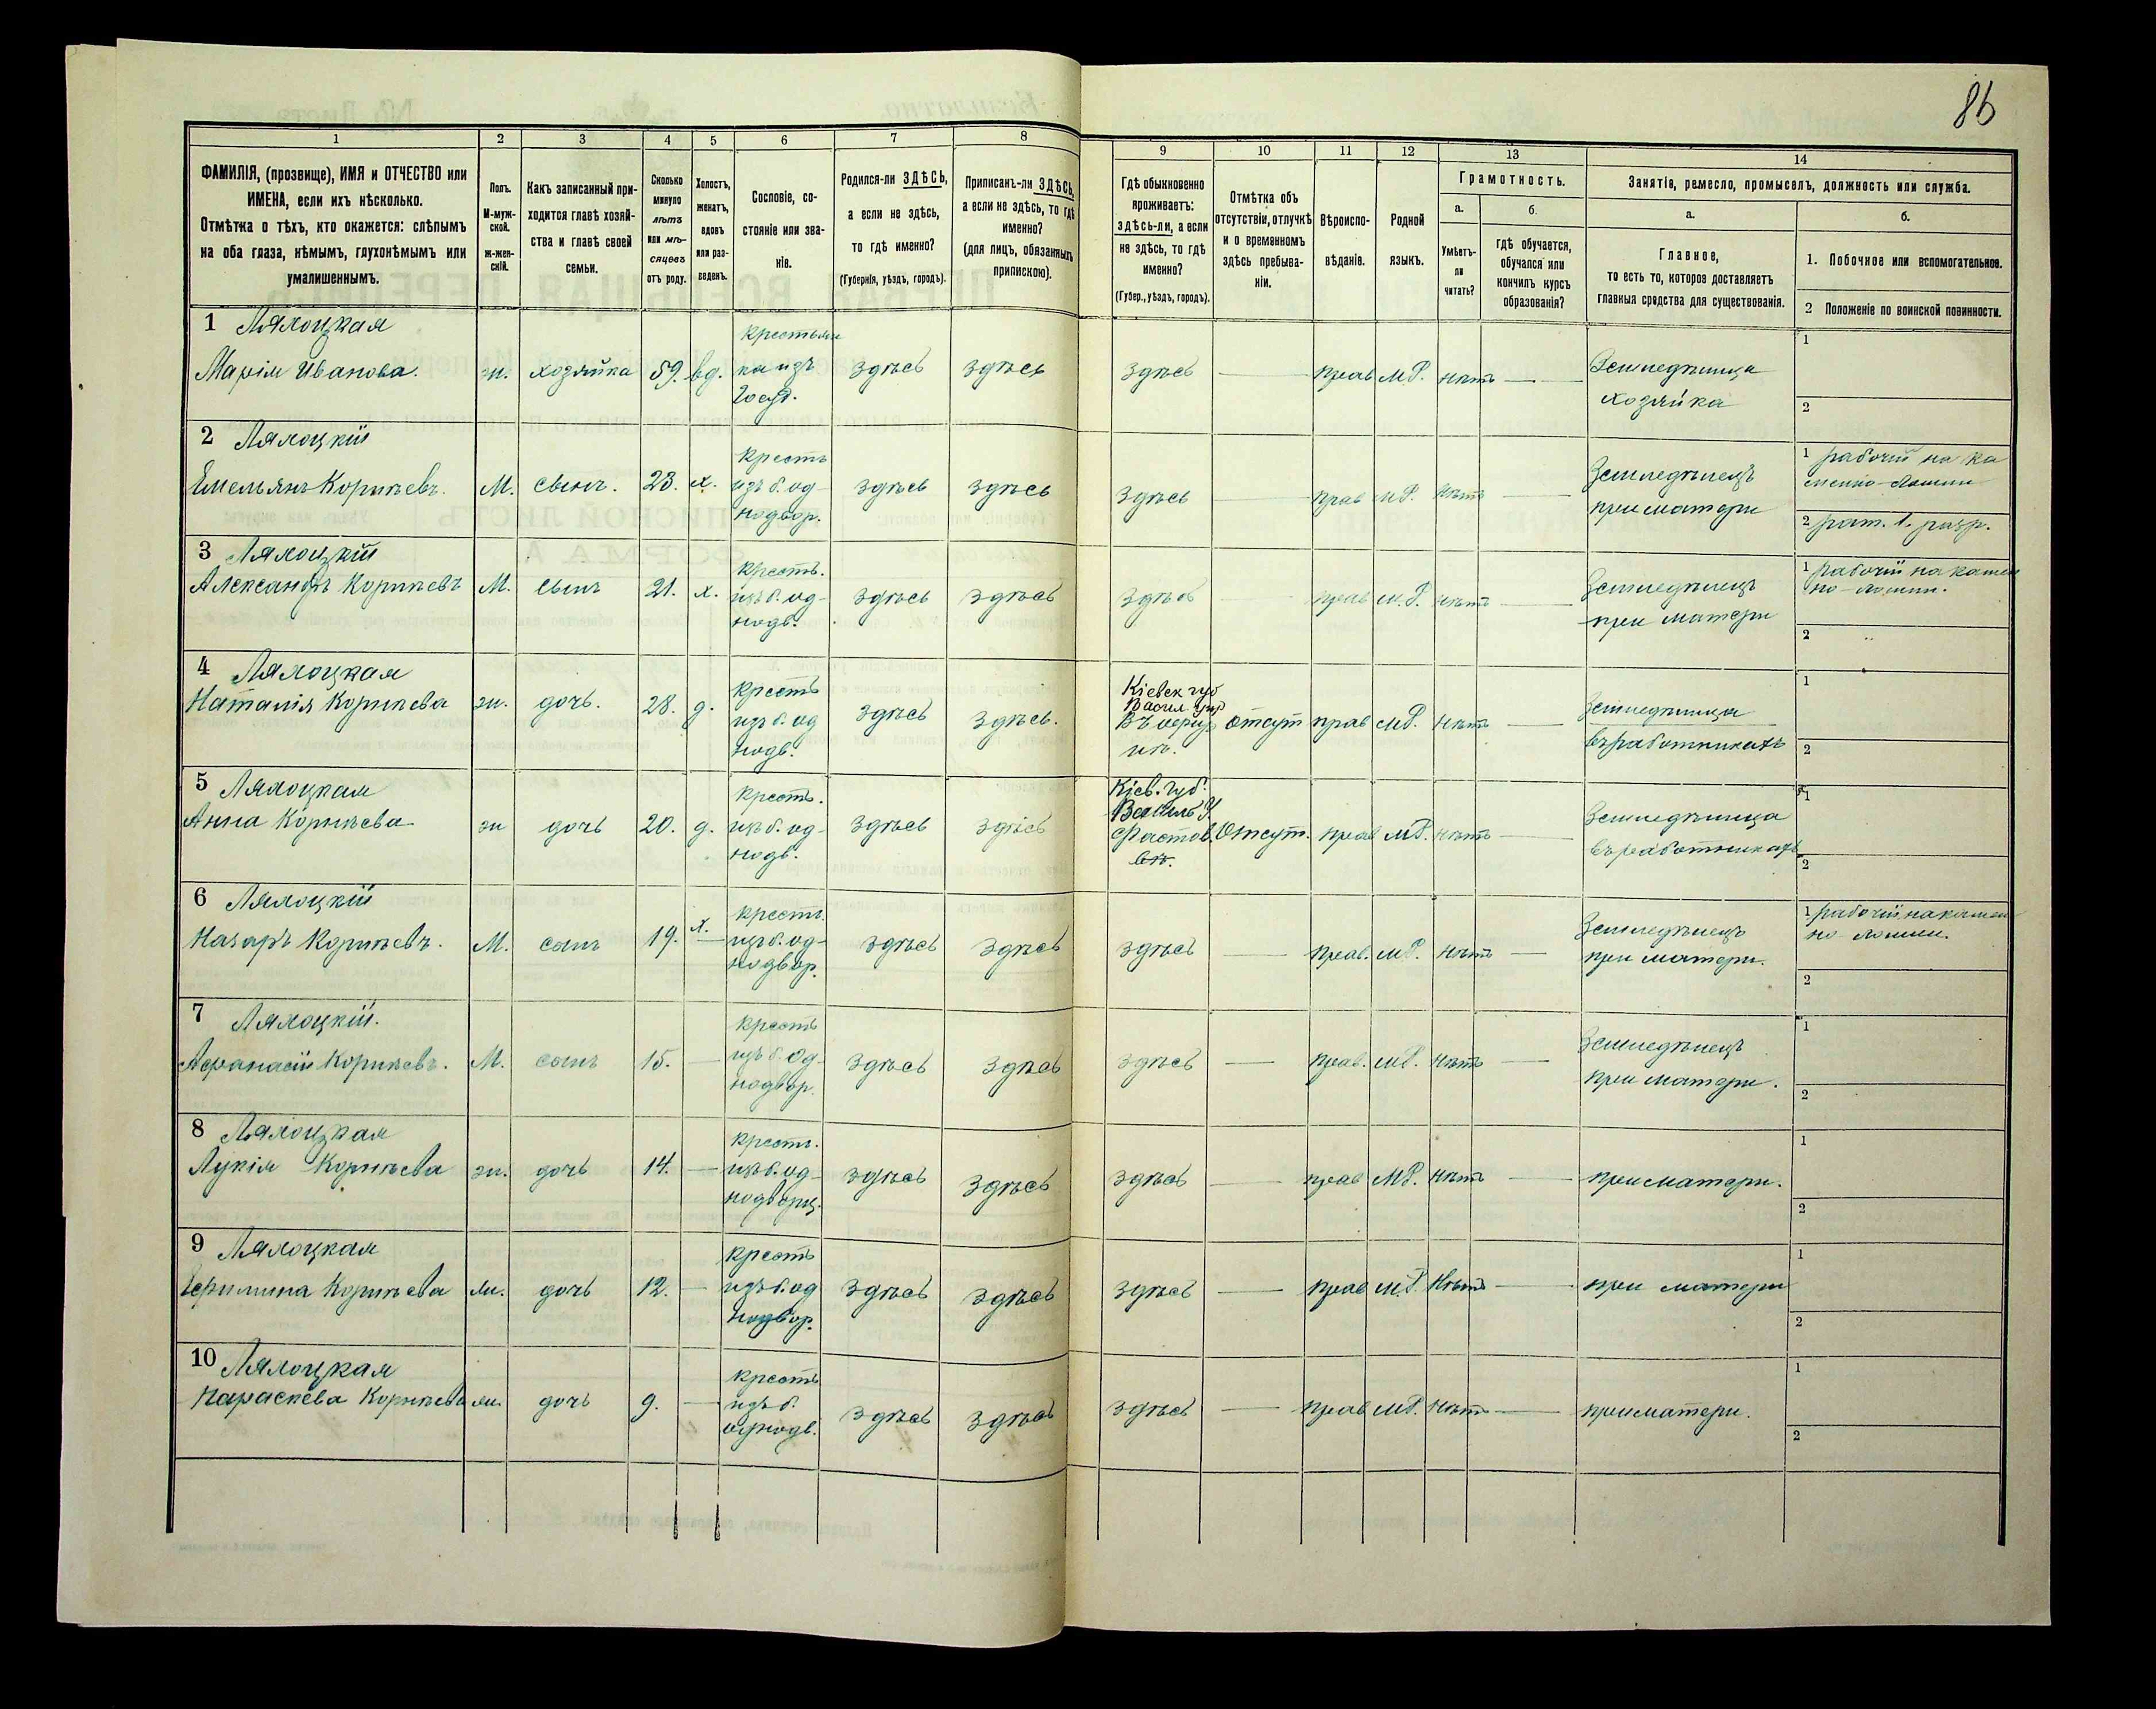 86
1
2
3
4
5
6
7
8
9
10
11
12
13
14
ФАМИЛІЯ, (прозвище), ИМЯ и ОТЧЕСТВО или
ИМЕНА, если ихъ нѣсколько.
Отмѣтка о тѣхъ, кто окажется: слѣпымъ
на оба глаза, нѣмымъ, глухонѣмымъ или
умалишеннымъ.
Полъ.
М-муж-
ской.
ж-жен-
скій.
Какъ записанный при-
ходится главѣ хозяй-
ства и главѣ своей
семьи.
Сколько
минуло
лѣтъ
или мѣ-
сяцевъ
отъ роду.
Холостъ,
женатъ,
вдовъ
или раз-
веденъ.
Сословіе, со-
стояніе или зва-
ніе.
Родился-ли ЗДѢСЬ,
а если не здѣсь,
то гдѣ именно?
(Губернія, уѣздъ, городъ).
Приписанъ-ли ЗДѢСЬ,
а если не здѣсь, то гдѣ
именно?
(для лицъ, обязанныхъ
припискою).
Гдѣ обыкновенно
проживаетъ:
здѣсь-ли, а если
не здѣсь, то гдѣ
именно?
(Губер., уѣздъ, городъ).
Отмѣтка объ
отсутствіи, отлучкѣ
и о временномъ
здѣсь пребыва-
ніи.
Вѣроиспо-
вѣданіе.
Родной
языкъ.
Грамотность.
а.
Умѣетъ-
ли
читать?
б.
гдѣ обучается,
обучался или
кончилъ курсъ
образованія?
Занятіе, ремесло, промыселъ, должность или служба.
а.
Главное,
то есть то, которое доставляетъ
главныя средства для существованія.
б.
1. Побочное или вспомогательное.
2 Положеніе по воинской повинности.
1 Лялоцкая
Марія Иванова. ж. хозяйка 59. вд.
Крестьян
ка изъ
Госуд.
Здѣсь здѣсь здѣсь — прав М.Р. нѣтъ —
Земледѣлица
хозяйка
1
2
2 Лялоцкій
Емельянъ Корнѣевъ. М. сынъ. 23. х.
Крестъ
изъ б. од-
нодвор.
здѣсь здѣсь здѣсь — прав М.Р. нѣтъ —
Земледѣлецъ
при матери
1 рабочій на ка
менно-ломни
2 рат. 1. разр.
3 Лялоцкій
Александръ Корнѣевъ М. сынъ 21. х.
Крестъ.
изъ б. од-
нодв.
здѣсь здѣсь здѣсь — прав М.Р. нѣтъ —
Земледѣлецъ
при матери
1 рабочій на камен
но-ломни.
2
4 Лялоцкая
Наталія Корнѣева ж. дочь. 28. д.
Крестъ
изъ б. од
нодв.
здѣсь здѣсь.
Кіевск губ
Васил. уѣз
отсут прав М.Р. нѣтъ —
Земледѣлица
въ работникахъ
1
2
5 Лялоцкая
Анна Корнѣева ж дочь 20. д.
Крестъ.
изъ б. од-
нодв.
здѣсь здѣсь
Кіев. губ.
Василь У.
Фастов.
Отсут. прав М.Р. нѣтъ —
Земледѣлица
въ работникахъ
1
2
6 Лялоцкій
Назаръ Корнѣевъ. М. сынъ 19. х.
крестъ.
изъ б. од-
нодвор.
здѣсь здѣсь здѣсь — прав. М.Р. нѣтъ —
Земледѣлецъ
при матери.
1 рабочій на камен
но ломни.
2
7 Лялоцкій.
Афанасій Корнѣевъ. М. сынъ 15. —
крестъ
изъ б. од-
нодвор.
здѣсь здѣсь здѣсь — прав. М.Р. нѣтъ —
Земледѣлецъ
при матери.
1
2
8 Лялоцкая
Лукія Корнѣева ж. дочь 14. —
крестъ.
изъ б. од-
нодворц.
здѣсь здѣсь здѣсь — прав М.Р. нѣтъ —
при матери.
1
2
9 Лялоцкая
Ефимина Корнѣева ж. дочь 12. —
крестъ
изъ б. од
нодвор.
здѣсь здѣсь здѣсь — прав М.Р. нѣтъ —
при матери
1
2
10 Лялоцкая
Параскева Корнѣева ж. дочь 9. —
крестъ
изъ б.
однодв.
здѣсь здѣсь здѣсь — прав М.Р. нѣтъ —
при матери.
1
2